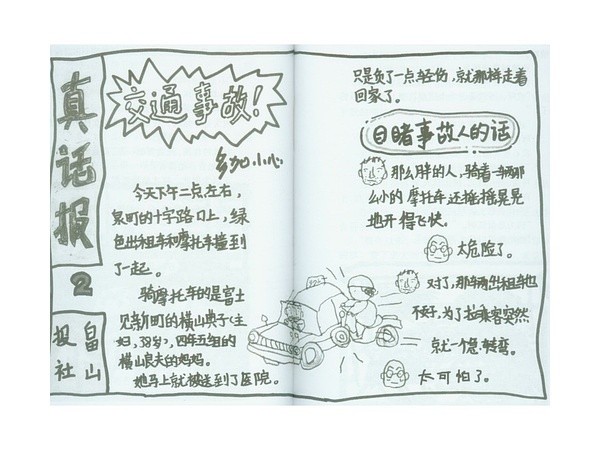 真话报
2
畠山
报社
交通事故!
多加小心
今天下午二点左右,
泉町的十字路口上,绿
色出租车和摩托车撞到
了一起。
骑摩托车的是富士
见新町的横山典子(主
妇,38岁),四年五组的
横山良夫的妈妈。
她马上就被送到了医院。
只是负了一点轻伤,就那样走着
回家了。
目睹事故人的话
那么胖的人,骑着一辆那
么小的摩托车还摇摇晃晃
地开得飞快。
太危险了。
对了,那辆出租车也
不好,为了拉乘客突然
就一个急转弯。
太可怕了。